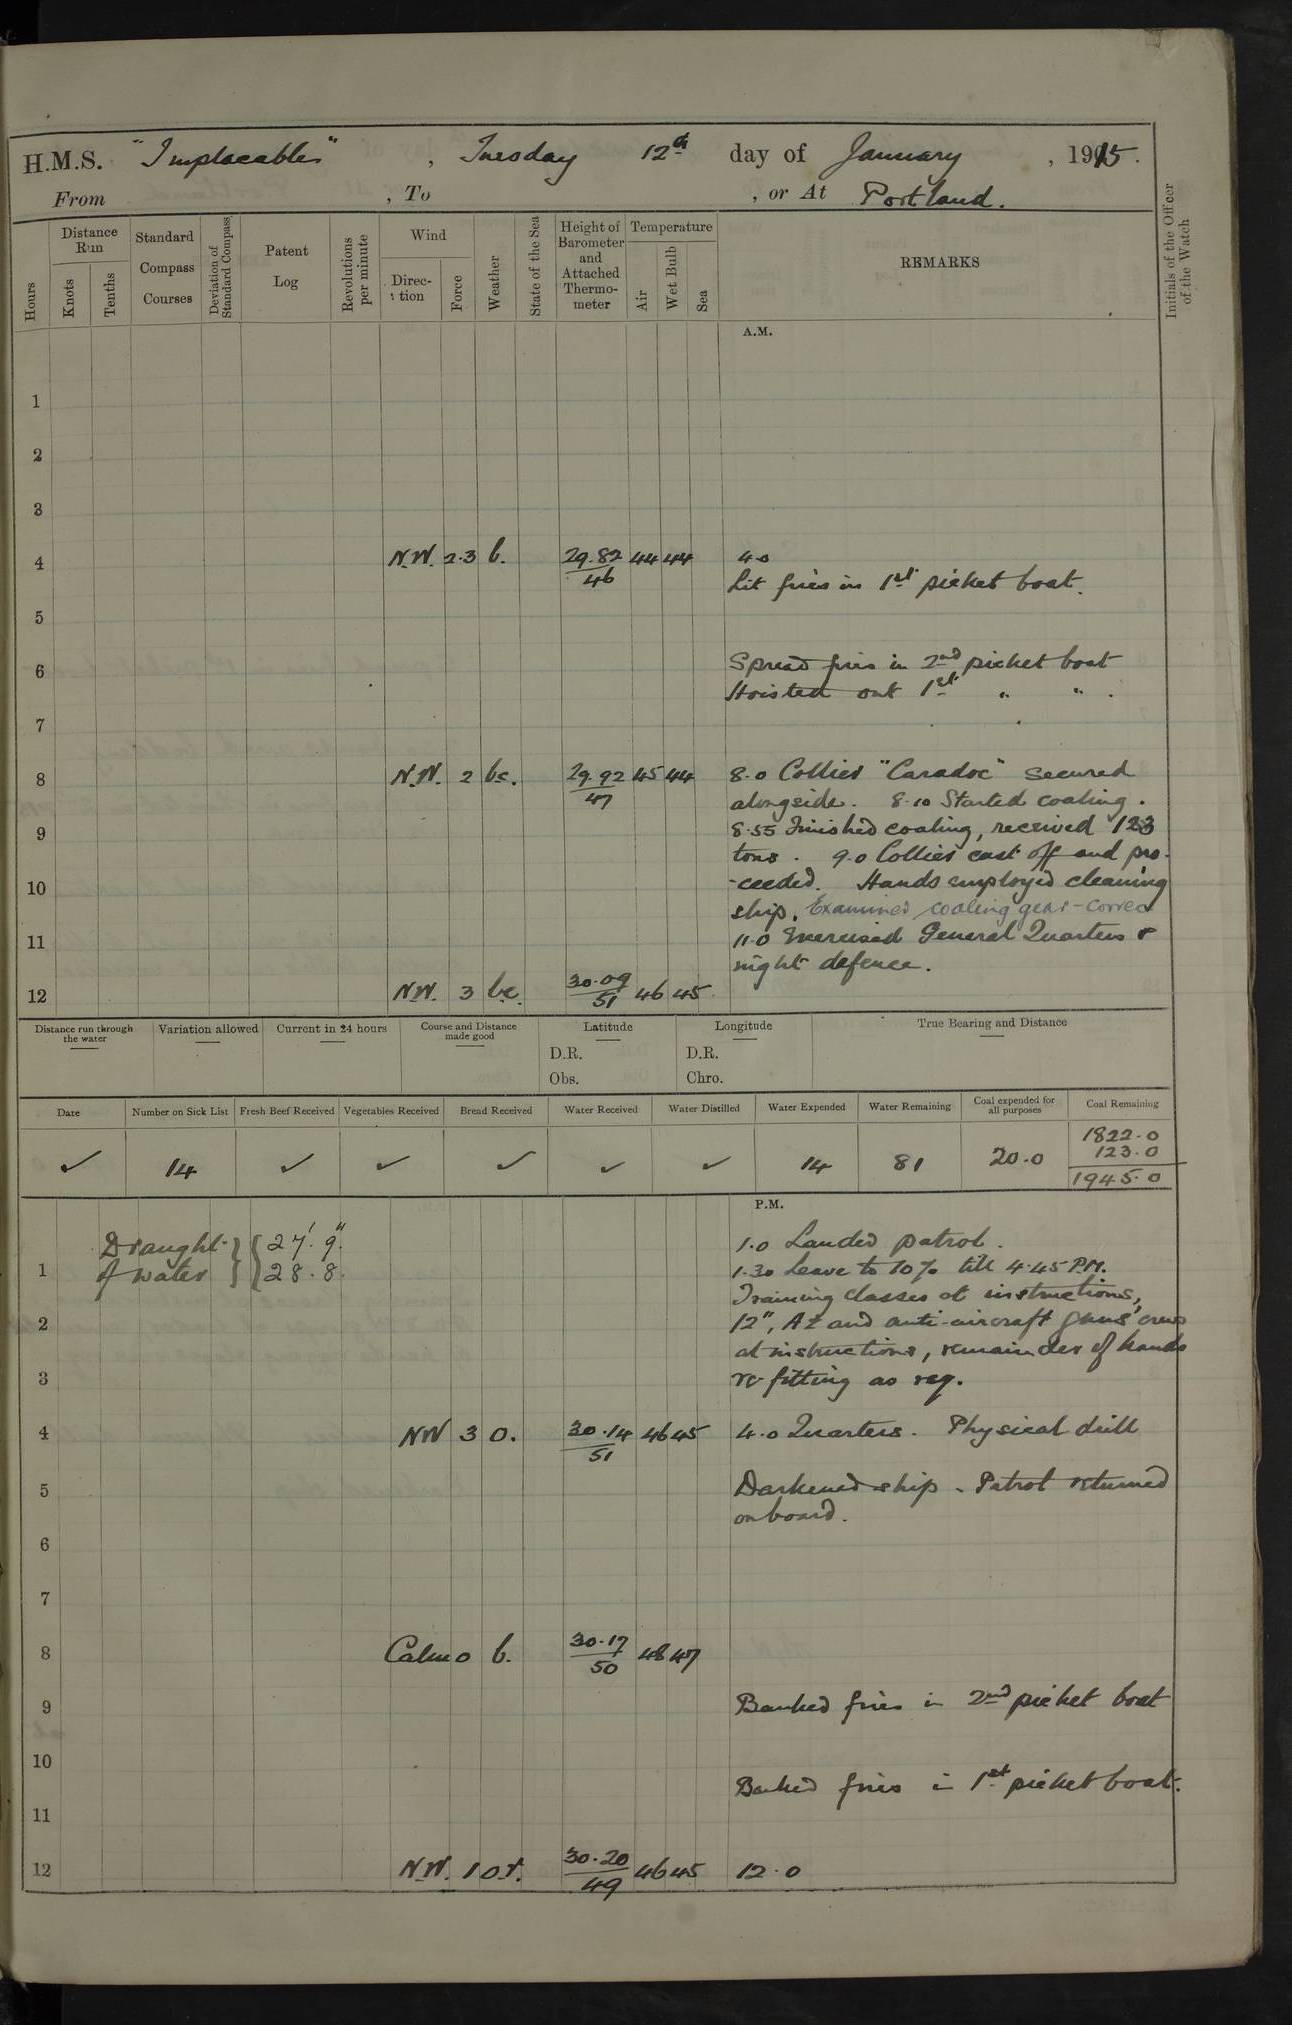 H.M.S. "Implacable", Tuesday 12th day of January, 1915.
From , To , or At Portland.
Hours
Distance Run
Knots
Tenths
Standard Compass Courses
Deviation of Standard Compass
Patent Log
Revolutions per minute
Wind
Direction
Force
Weather
State of the Sea
Height of Barometer and Attached Thermometer
Temperature
Air
Wet Bulb
Sea
REMARKS
Initials of the Officer of the Watch
A.M.
1
2
3
4 N.W. 2.3 b. 29.82/46 44 44 4.0
Lit fires in 1st picket boat.
5
6 Spread fires in 2nd picket boat
Hoisted out 1st " " .
7
8 N.W. 2 bc. 29.92/47 45 44 8.0 Collier "Caradoc" secured
alongside. 8.10 Started coaling.
9 8.55 Finished coaling, received 123
tons. 9.0 Collier cast off and pro-
10 -ceeded. Hands employed cleaning
ship. Examined coaling gear - correct
11 11.0 Exercised General Quarters &
night defence.
12 N.W. 3 bc. 30.09/51 46 45
Distance run through the water
Variation allowed
Current in 24 hours
Course and Distance made good
Latitude
D.R.
Obs.
Longitude
D.R.
Chro.
True Bearing and Distance
Date Number on Sick List Fresh Beef Received Vegetables Received Bread Received Water Received Water Distilled Water Expended Water Remaining Coal expended for all purposes Coal Remaining
1822.0
123.0
✓ 14 ✓ ✓ ✓ ✓ ✓ 14 81 20.0
1945.0
P.M.
Draught } { 27'. 9". 1.0 Landed patrol.
1 of water } { 28. 8. 1.30 Leave to 10% till 4.45 P.M.
Training classes at instructions,
2 12", A2 and anti-aircraft guns' crews
at instructions, remainder of hands
3 re-fitting as req.
4 NW 3 O. 30.14/51 46 45 4.0 Quarters. Physical drill
5 Darkened ship. Patrol returned
onboard.
6
7
8 Calm 0 b. 30.17/50 48 47
9 Banked fires in 2nd picket boat
10
Banked fires in 1st picket boat.
11
12 N.W. 1 30.20/49 46 45 12.0